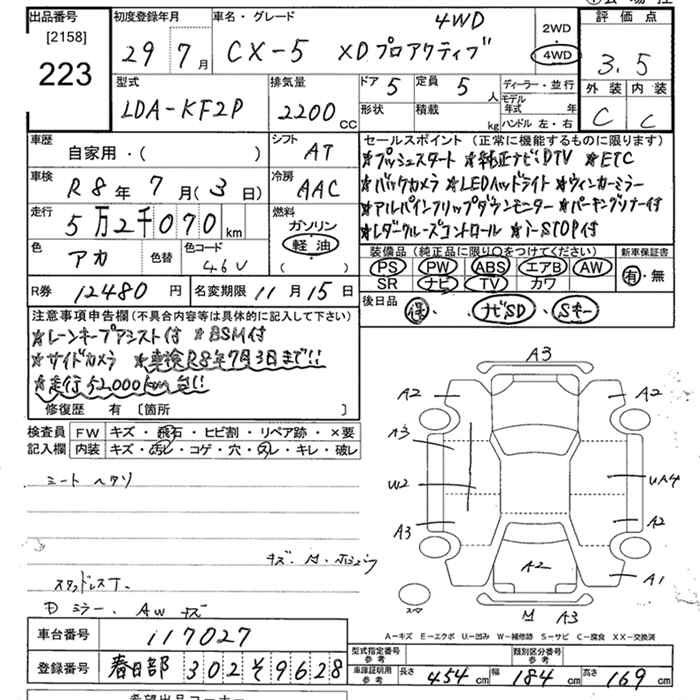 出品番号
[2158]
223
初度登録年月
29年 7月
車名・グレード
4WD
CX-5 XDプロアクティブ
2WD
4WD
評価点
3.5
外装 内装
C C
型式
LDA-KF2P
排気量
2200 CC
ドア 5
定員 5 人
形状
積載 kg
ディーラー・並行
モデル年式 年
ハンドル 左・右
車歴
自家用・( )
シフト AT
車検
R8年 7月(3日)
冷房 AAC
走行
5万2千070 km
燃料
ガソリン
軽油
( )
色 アカ
色替
色コード 46V
セールスポイント (正常に機能するものに限ります)
★プッシュスタート ★純正ナビDTV ★ETC
★バックカメラ ★LEDヘッドライト ★ウィンカーミラー
★アルパインフリップダウンモニター ★パーキングソナー付
★レダクルーズコントロール ★i-STOP付
装備品 (純正品に限り○をつけてください)
PS PW ABS エアB AW
SR ナビ TV カワ
新車保証書
有・無
R券 12480円
名変期限 11月15日
後日品
保 ナビSD Sキー
注意事項申告欄(不具合内容等は具体的に記入して下さい)
★レーンキープアシスト付 ★BSM付
★サイドカメラ ★車検R8年7月3日まで!!
★走行52,000km台!!
修復歴 有 [箇所 ]
検査員 FW キズ・飛石・ヒビ割・リペア跡・×要
記入欄 内装 キズ・汚レ・コゲ・穴・スレ・キレ・破レ
シートヘタリ
スタッドレスT.
ミラー. AWキズ
A3
A2 A2
A3
W2 UA4
A3 A2
A2 A1
スマ
M A3
A-キズ E-エクボ U-凹み W-補修跡 S-サビ C-腐食 XX-交換済
車台番号 117027
登録番号 春日部 302 そ 9628
型式指定番号 参考
類別区分番号 参考
車庫証明用 参考 長さ 454cm 幅 184cm 高さ 169cm
希望出品コーナー